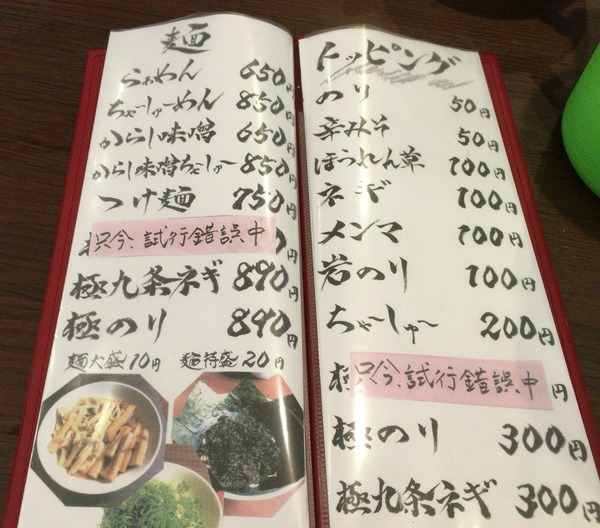 麺
らぁめん 650円
ちゃーしゅーめん 850円
からし味噌 650円
からし味噌ちゃーしゅー 850円
つけ麺 750円
只今、試行錯誤中
極九条ネギ 890円
極のり 890円
麺大盛10円 麺特盛20円
トッピング
のり 50円
辛みそ 50円
ほうれん草 100円
ネギ 100円
メンマ 100円
岩のり 100円
ちゃーしゅー 200円
極 只今、試行錯誤中 円
極のり 300円
極九条ネギ 300円